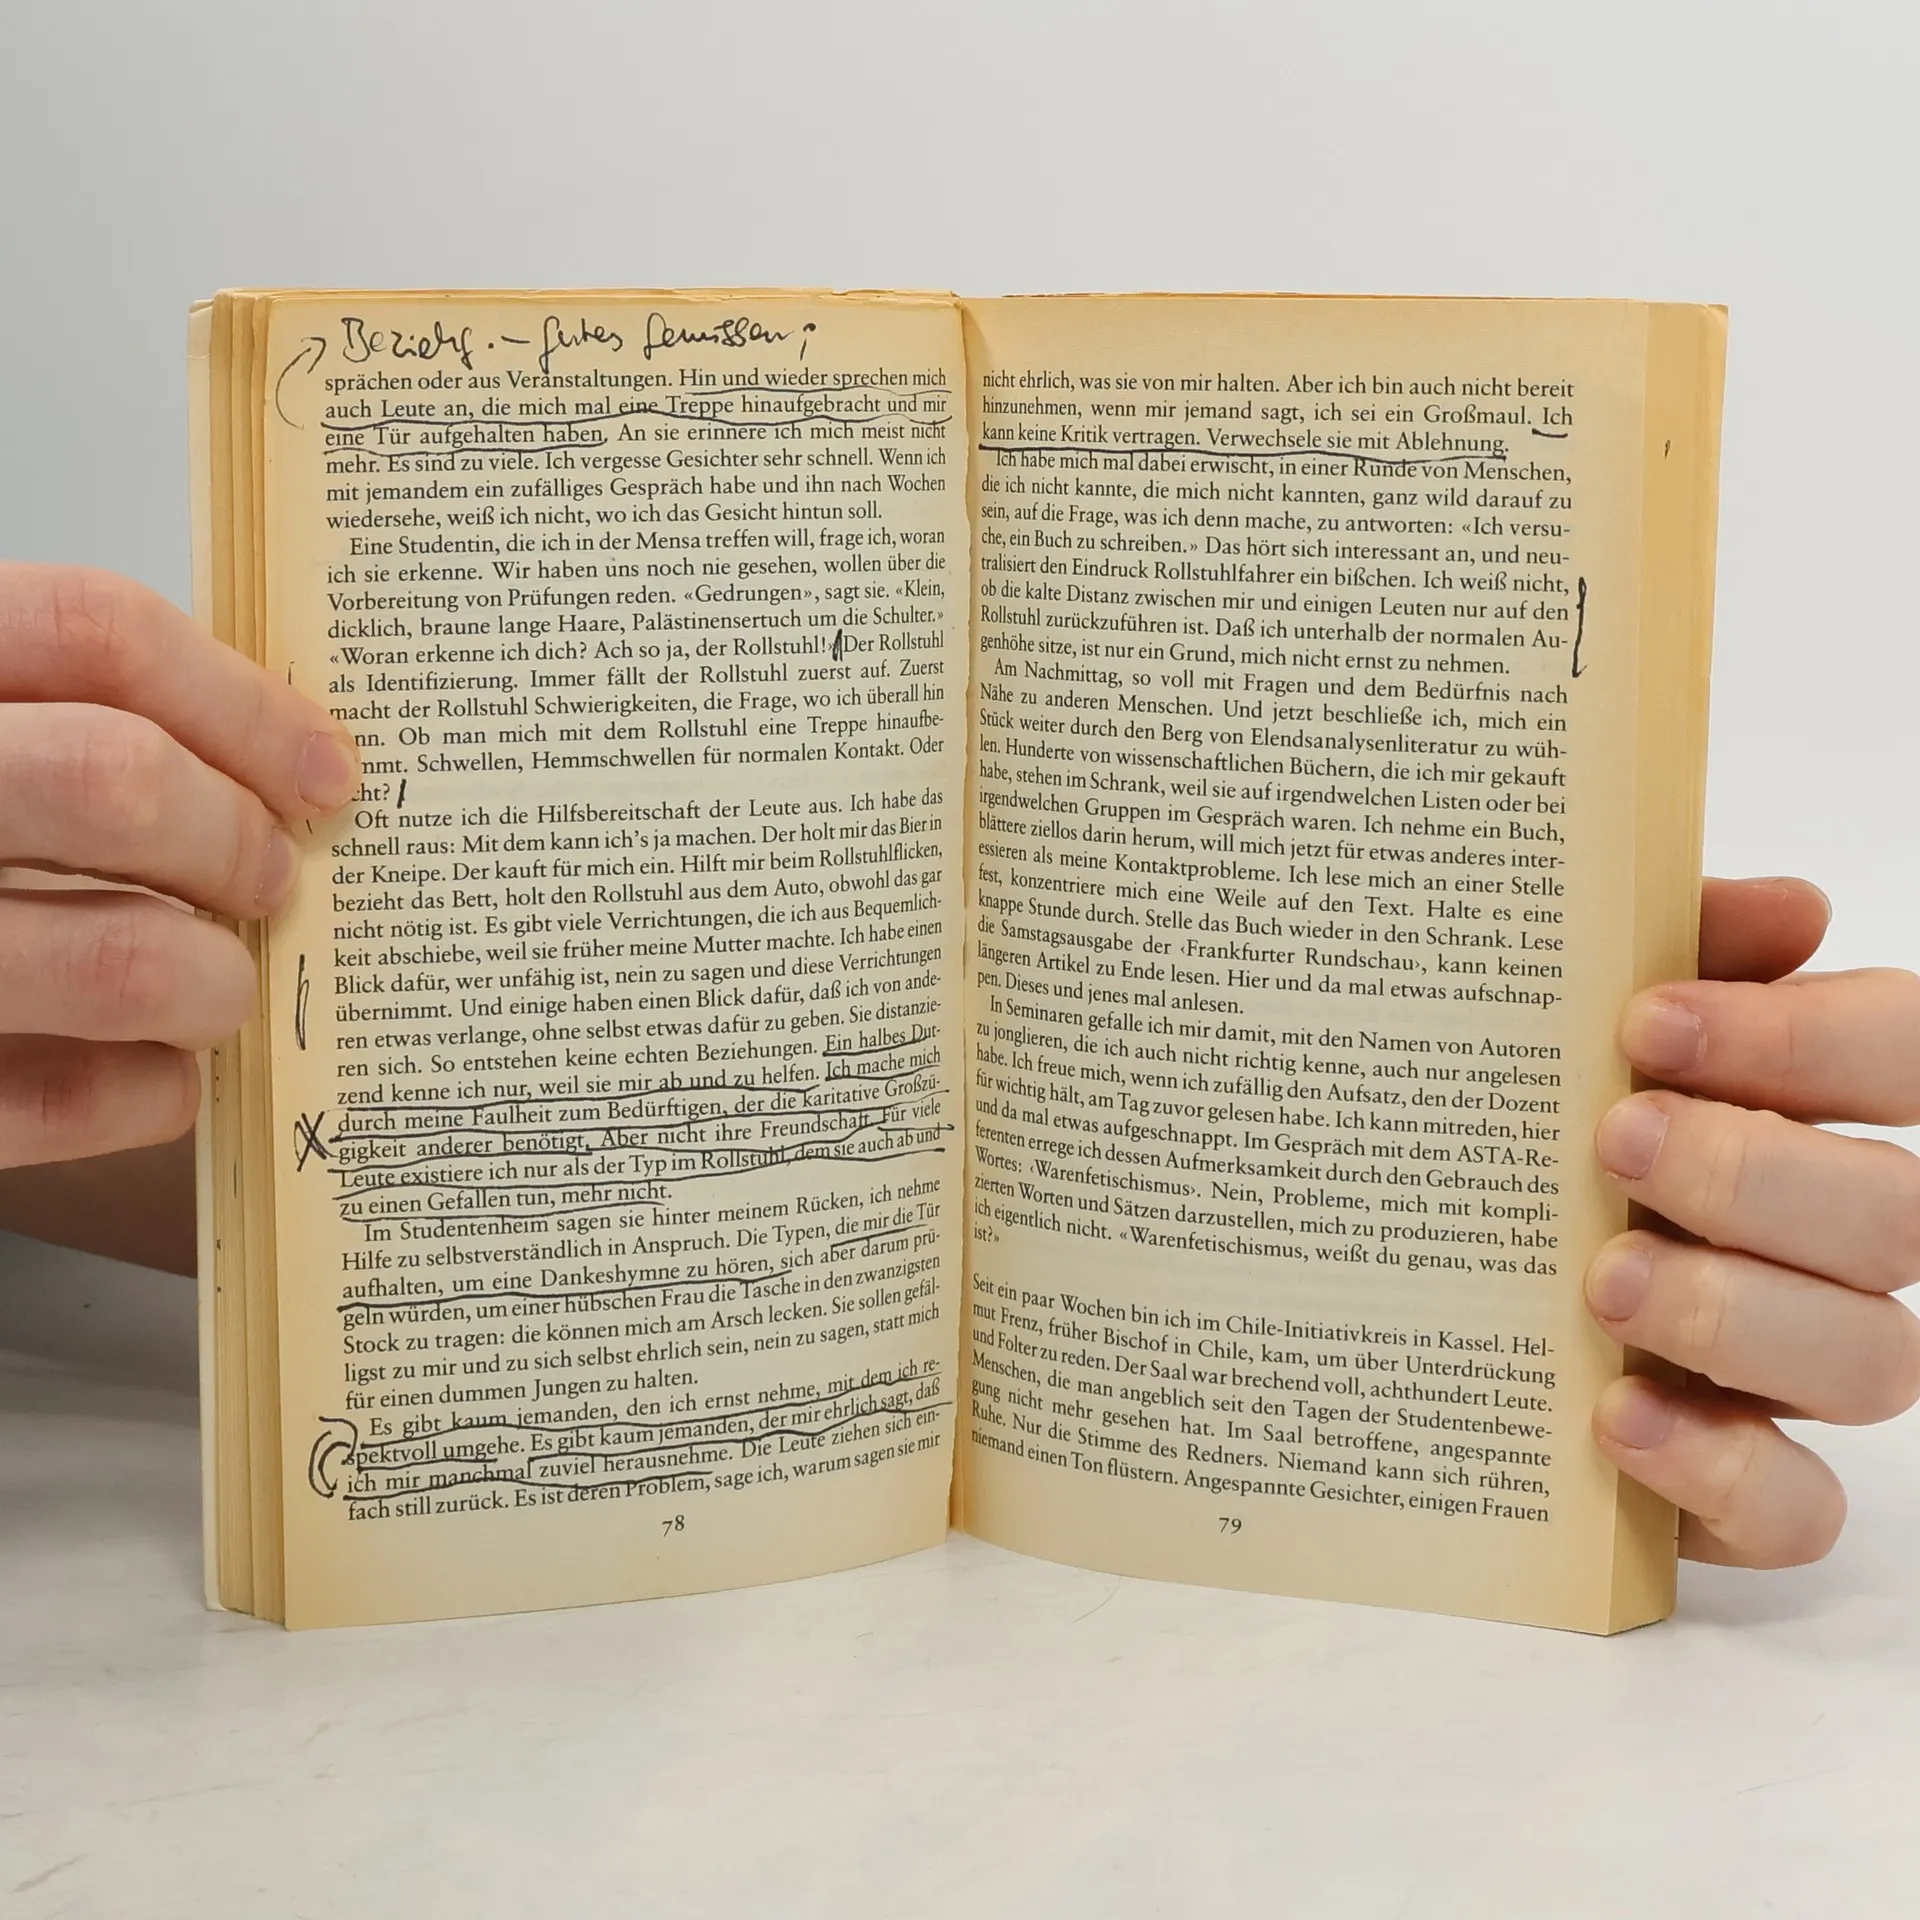 Beziehg. – gutes Gewissen;
sprächen oder aus Veranstaltungen. Hin und wieder sprechen mich
auch Leute an, die mich mal eine Treppe hinaufgebracht und mir
eine Tür aufgehalten haben. An sie erinnere ich mich meist nicht
mehr. Es sind zu viele. Ich vergesse Gesichter sehr schnell. Wenn ich
mit jemandem ein zufälliges Gespräch habe und ihn nach Wochen
wiedersehe, weiß ich nicht, wo ich das Gesicht hintun soll.
Eine Studentin, die ich in der Mensa treffen will, frage ich, woran
ich sie erkenne. Wir haben uns noch nie gesehen, wollen über die
Vorbereitung von Prüfungen reden. «Gedrungen», sagt sie. «Klein,
dicklich, braune lange Haare, Palästinensertuch um die Schulter.»
«Woran erkenne ich dich? Ach so ja, der Rollstuhl!» Der Rollstuhl
als Identifizierung. Immer fällt der Rollstuhl zuerst auf. Zuerst
macht der Rollstuhl Schwierigkeiten, die Frage, wo ich überall hin
nn. Ob man mich mit dem Rollstuhl eine Treppe hinaufbe-
mmt. Schwellen, Hemmschwellen für normalen Kontakt. Oder
cht?
Oft nutze ich die Hilfsbereitschaft der Leute aus. Ich habe das
schnell raus: Mit dem kann ich's ja machen. Der holt mir das Bier in
der Kneipe. Der kauft für mich ein. Hilft mir beim Rollstuhlflicken,
bezieht das Bett, holt den Rollstuhl aus dem Auto, obwohl das gar
nicht nötig ist. Es gibt viele Verrichtungen, die ich aus Bequemlich-
keit abschiebe, weil sie früher meine Mutter machte. Ich habe einen
Blick dafür, wer unfähig ist, nein zu sagen und diese Verrichtungen
übernimmt. Und einige haben einen Blick dafür, daß ich von ande-
ren etwas verlange, ohne selbst etwas dafür zu geben. Sie distanzie-
ren sich. So entstehen keine echten Beziehungen. Ein halbes Dut-
zend kenne ich nur, weil sie mir ab und zu helfen. Ich mache mich
durch meine Faulheit zum Bedürftigen, der die karitative Großzü-
gigkeit anderer benötigt. Aber nicht ihre Freundschaft. Für viele
Leute existiere ich nur als der Typ im Rollstuhl, dem sie auch ab und
zu einen Gefallen tun, mehr nicht.
Im Studentenheim sagen sie hinter meinem Rücken, ich nehme
Hilfe zu selbstverständlich in Anspruch. Die Typen, die mir die Tür
aufhalten, um eine Dankeshymne zu hören, sich aber darum prü-
geln würden, um einer hübschen Frau die Tasche in den zwanzigsten
Stock zu tragen: die können mich am Arsch lecken. Sie sollen gefäl-
ligst zu mir und zu sich selbst ehrlich sein, nein zu sagen, statt mich
für einen dummen Jungen zu halten.
Es gibt kaum jemanden, den ich ernst nehme, mit dem ich re-
spektvoll umgehe. Es gibt kaum jemanden, der mir ehrlich sagt, daß
ich mir manchmal zuviel herausnehme. Die Leute ziehen sich ein-
fach still zurück. Es ist deren Problem, sage ich, warum sagen sie mir
78
nicht ehrlich, was sie von mir halten. Aber ich bin auch nicht bereit
hinzunehmen, wenn mir jemand sagt, ich sei ein Großmaul. Ich
kann keine Kritik vertragen. Verwechsele sie mit Ablehnung.
Ich habe mich mal dabei erwischt, in einer Runde von Menschen,
die ich nicht kannte, die mich nicht kannten, ganz wild darauf zu
sein, auf die Frage, was ich denn mache, zu antworten: «Ich versu-
che, ein Buch zu schreiben.» Das hört sich interessant an, und neu-
tralisiert den Eindruck Rollstuhlfahrer ein bißchen. Ich weiß nicht,
ob die kalte Distanz zwischen mir und einigen Leuten nur auf den
Rollstuhl zurückzuführen ist. Daß ich unterhalb der normalen Au-
genhöhe sitze, ist nur ein Grund, mich nicht ernst zu nehmen.
Am Nachmittag, so voll mit Fragen und dem Bedürfnis nach
Nähe zu anderen Menschen. Und jetzt beschließe ich, mich ein
Stück weiter durch den Berg von Elendsanalysenliteratur zu wüh-
len. Hunderte von wissenschaftlichen Büchern, die ich mir gekauft
habe, stehen im Schrank, weil sie auf irgendwelchen Listen oder bei
irgendwelchen Gruppen im Gespräch waren. Ich nehme ein Buch,
blättere ziellos darin herum, will mich jetzt für etwas anderes inter-
essieren als meine Kontaktprobleme. Ich lese mich an einer Stelle
fest, konzentriere mich eine Weile auf den Text. Halte es eine
knappe Stunde durch. Stelle das Buch wieder in den Schrank. Lese
die Samstagsausgabe der ‹Frankfurter Rundschau›, kann keinen
längeren Artikel zu Ende lesen. Hier und da mal etwas aufschnap-
pen. Dieses und jenes mal anlesen.
In Seminaren gefalle ich mir damit, mit den Namen von Autoren
zu jonglieren, die ich auch nicht richtig kenne, auch nur angelesen
habe. Ich freue mich, wenn ich zufällig den Aufsatz, den der Dozent
für wichtig hält, am Tag zuvor gelesen habe. Ich kann mitreden, hier
und da mal etwas aufgeschnappt. Im Gespräch mit dem ASTA-Re-
ferenten errege ich dessen Aufmerksamkeit durch den Gebrauch des
Wortes: ‹Warenfetischismus›. Nein, Probleme, mich mit kompli-
zierten Worten und Sätzen darzustellen, mich zu produzieren, habe
ich eigentlich nicht. «Warenfetischismus, weißt du genau, was das
ist?»
Seit ein paar Wochen bin ich im Chile-Initiativkreis in Kassel. Hel-
mut Frenz, früher Bischof in Chile, kam, um über Unterdrückung
und Folter zu reden. Der Saal war brechend voll, achthundert Leute.
Menschen, die man angeblich seit den Tagen der Studentenbewe-
gung nicht mehr gesehen hat. Im Saal betroffene, angespannte
Ruhe. Nur die Stimme des Redners. Niemand kann sich rühren,
niemand einen Ton flüstern. Angespannte Gesichter, einigen Frauen
79